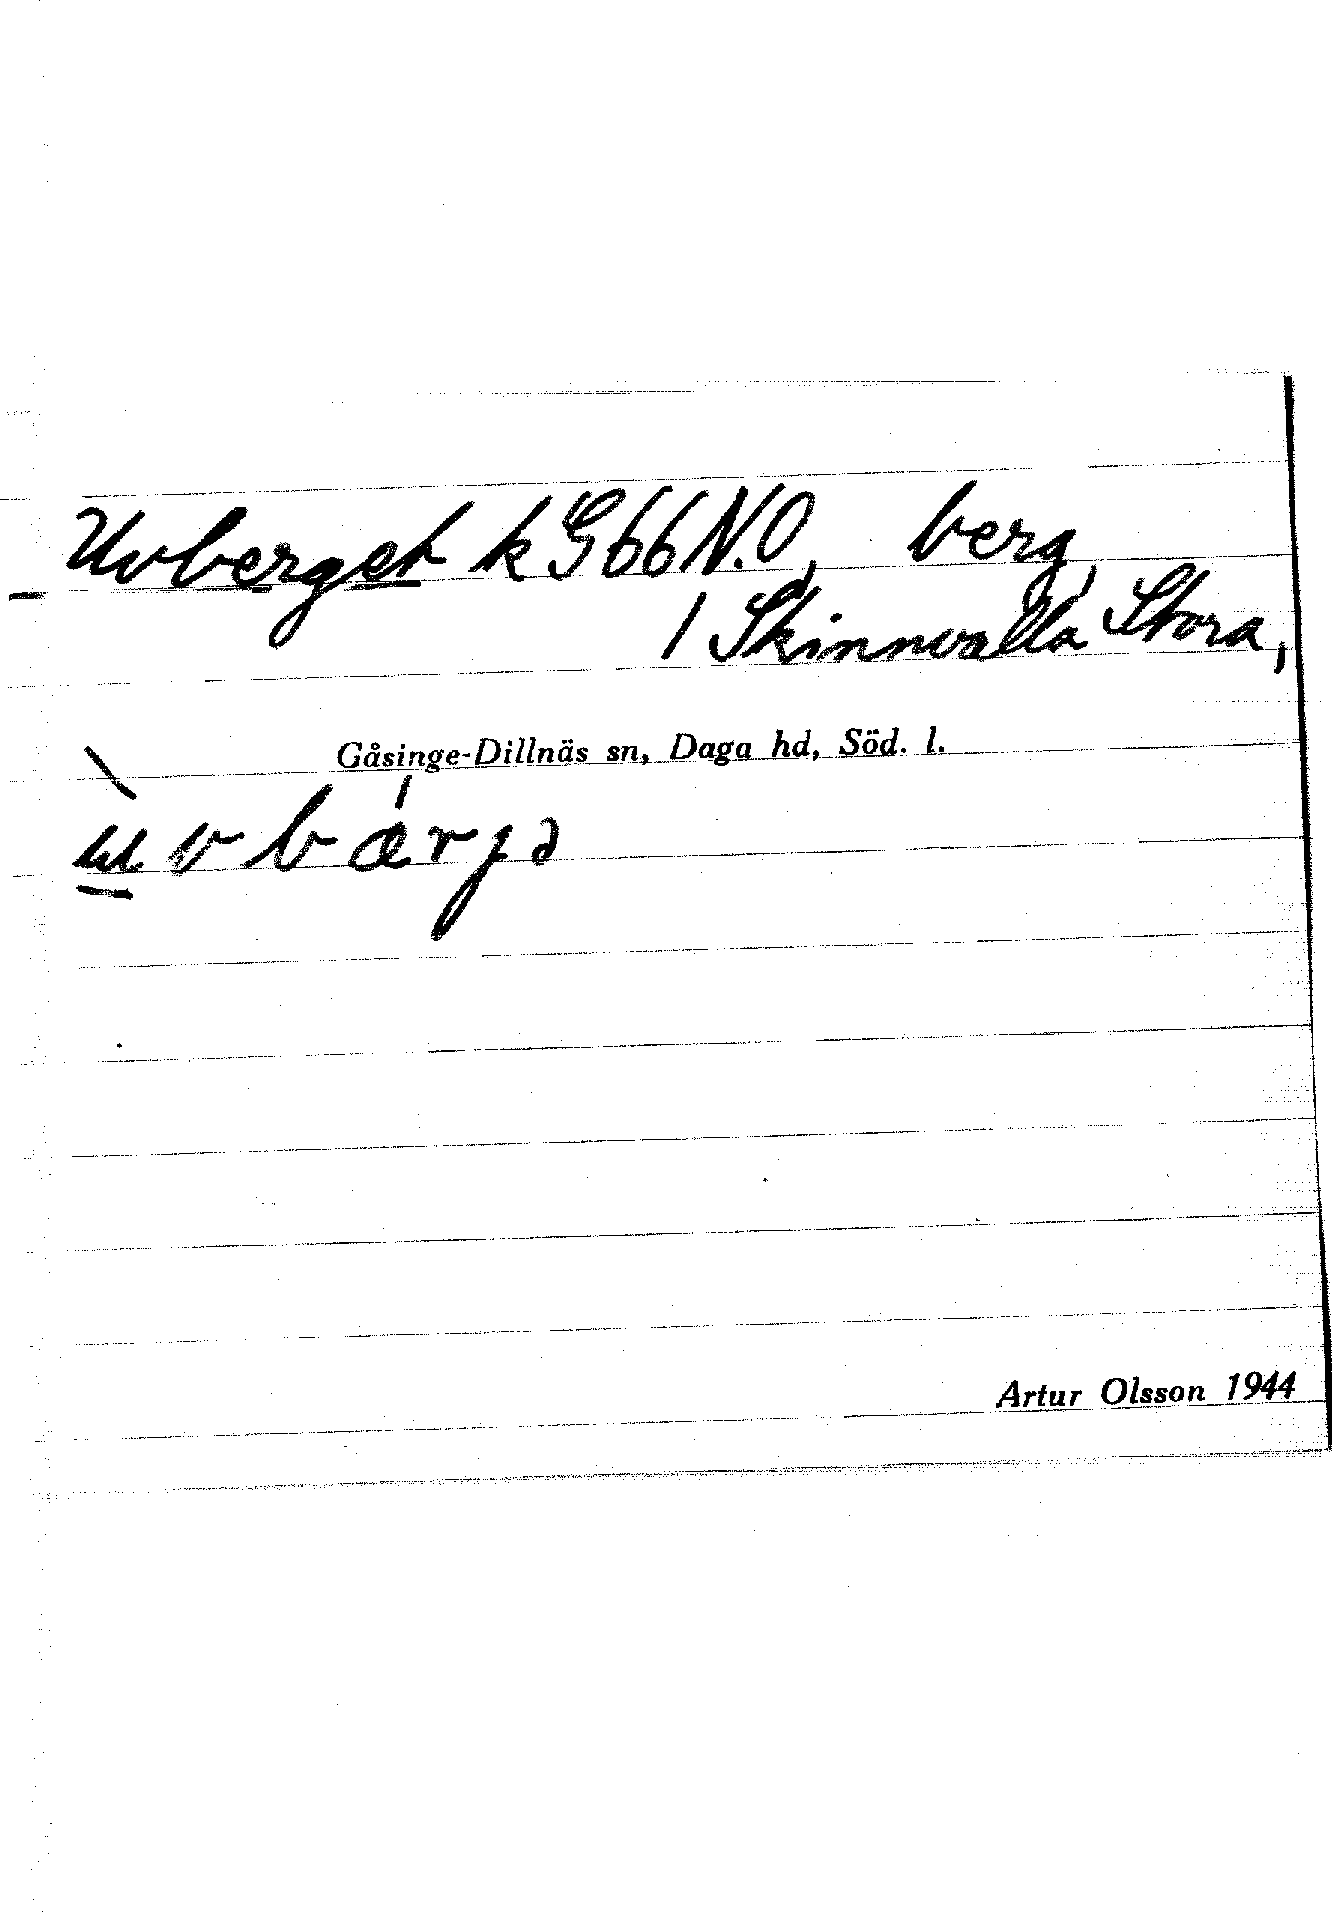 Uvberget k G66 N.O, berg,
1 Skinnvalla Stora,
Gåsinge-Dillnäs sn, Daga hd, Söd. l.
ù̱ v b ǽ r g ə
Artur Olsson 1944